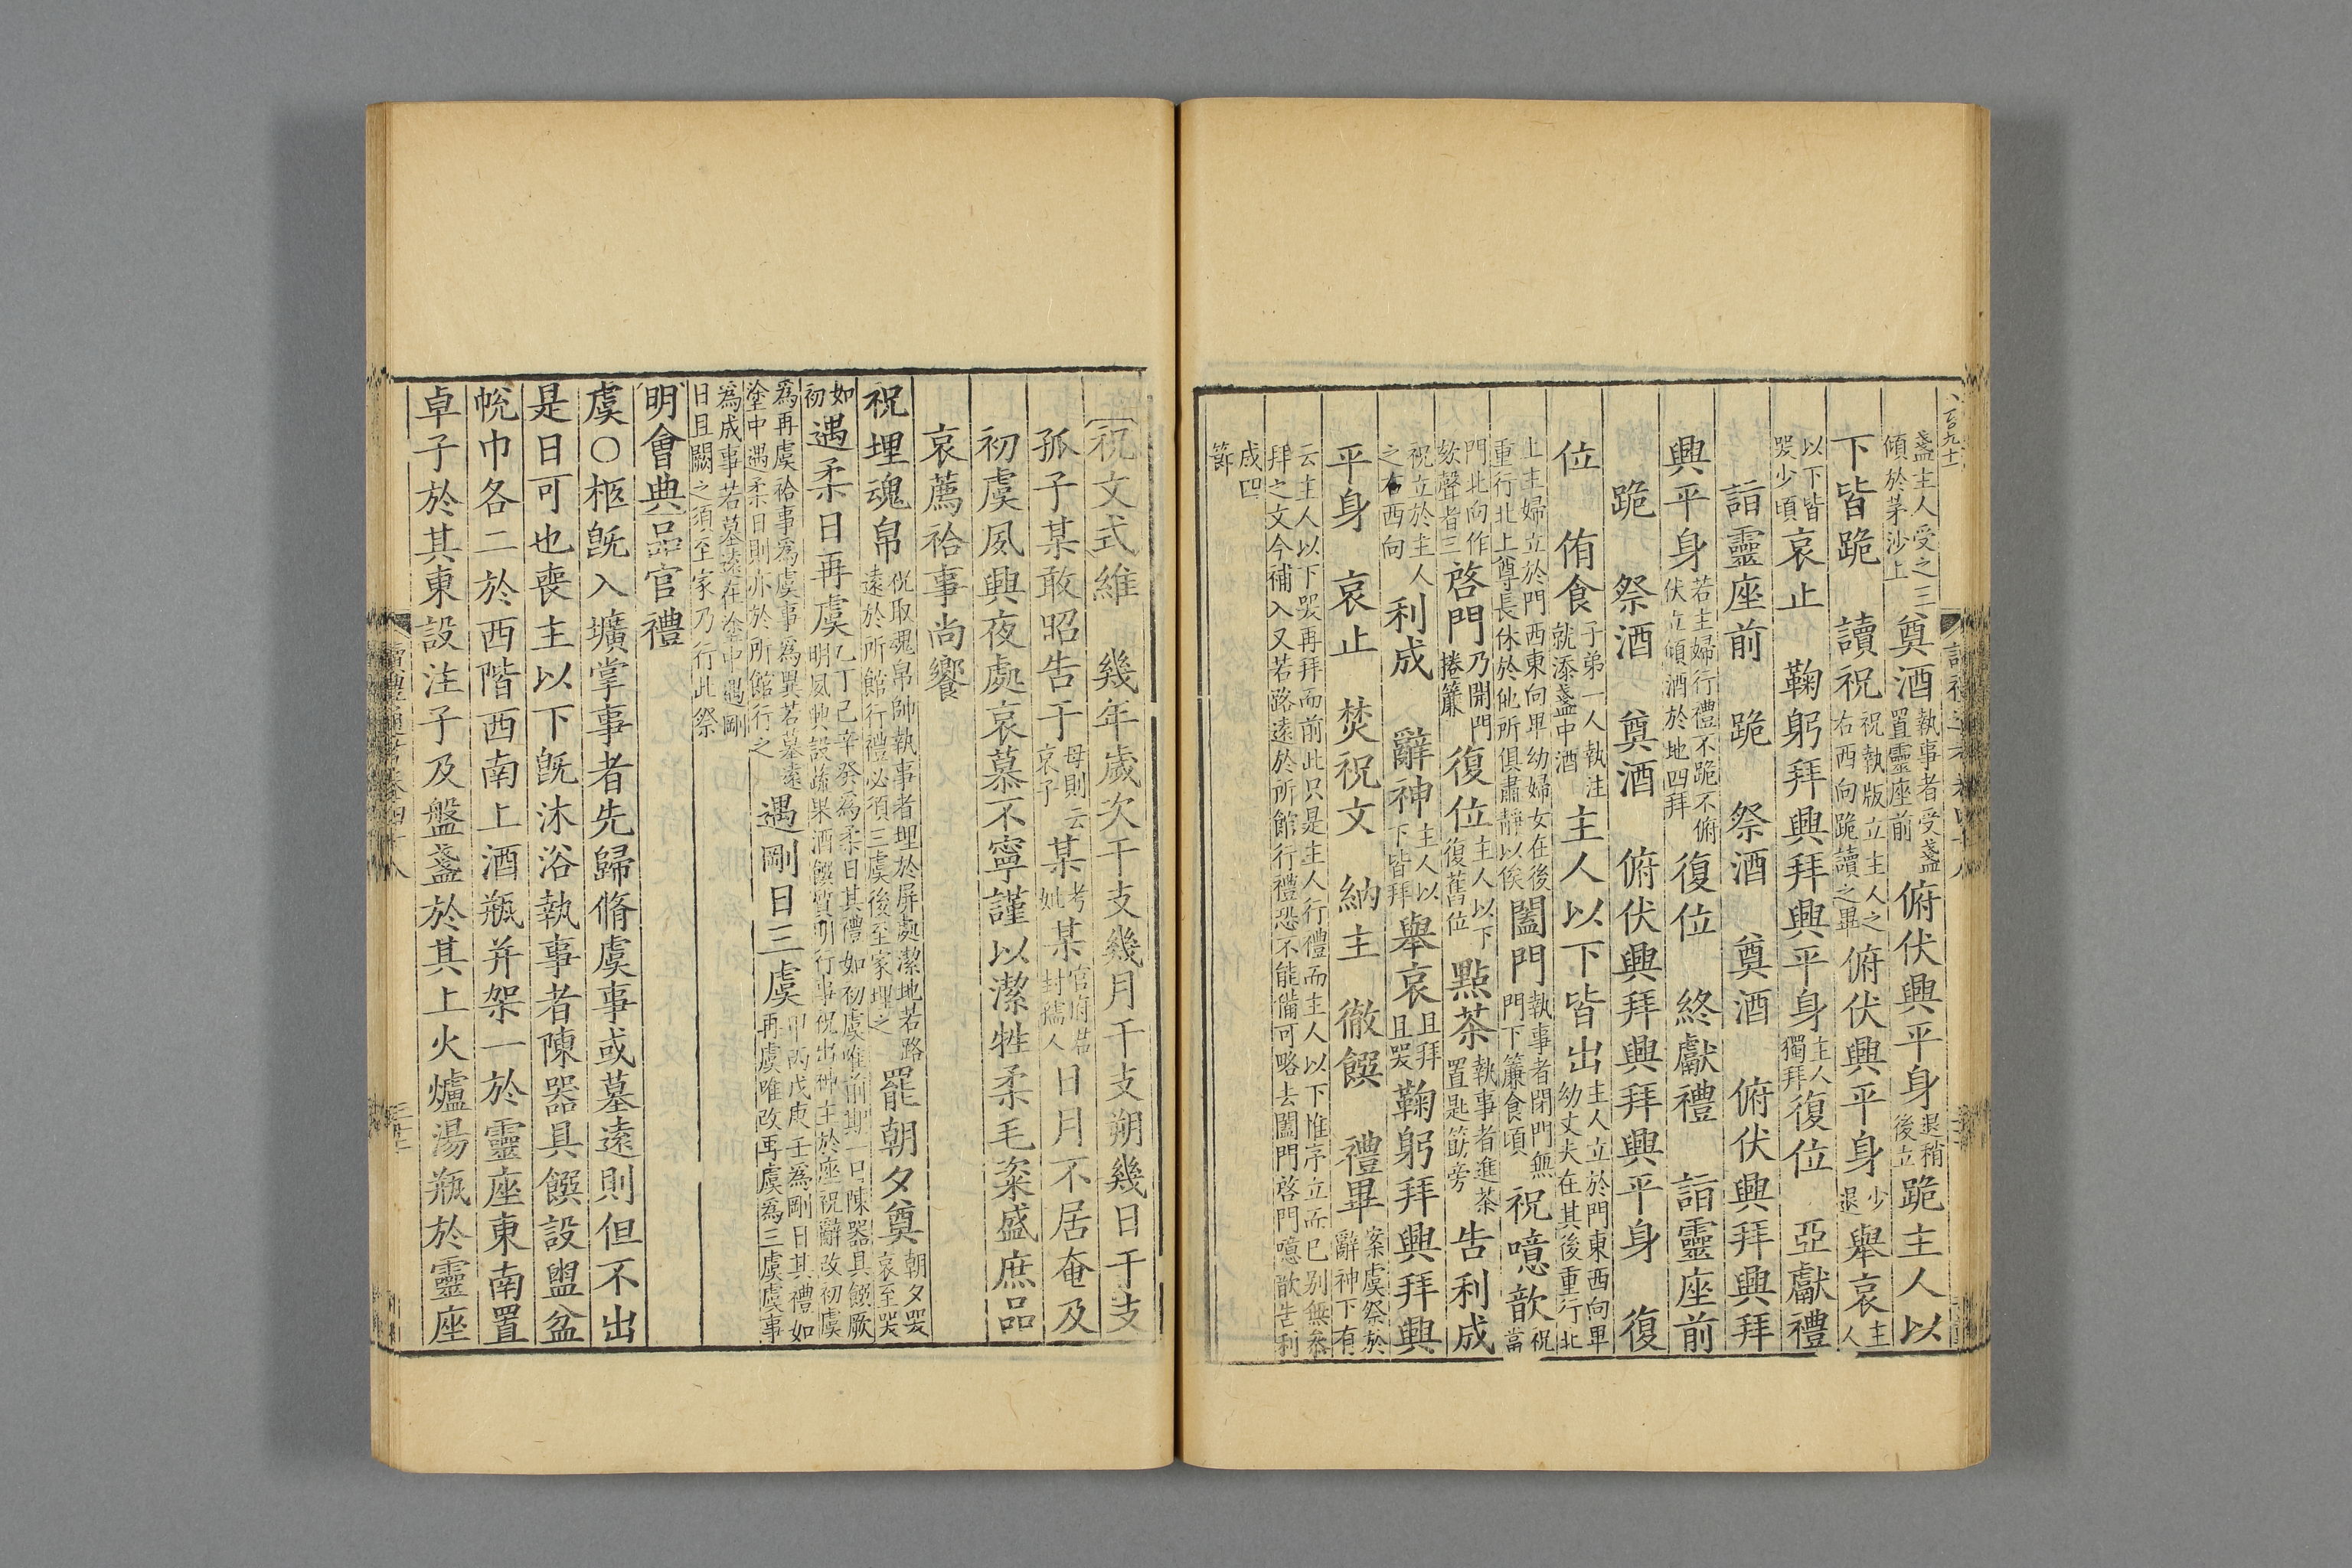 盞主人受之三傾於茅沙上奠酒執事者受盞置靈座前俯伏興平身退稍後立跪主人以
下皆跪 讀祝祝執版立主人之右西向跪讀之畢俯伏興平身少退舉哀主人
以下皆哭少頃哀止 鞠躬拜興拜興平身主人獨拜復位 亞獻禮
詣靈座前 跪 祭酒 奠酒 俯伏興拜興拜
興平身若主婦行禮不跪不俯伏立傾酒於地四拜復位 終獻禮 詣靈座前
跪 祭酒 奠酒 俯伏興拜興拜興平身 復
位 侑食子弟一人執注就添盞中酒 主人以下皆出主人立於門東西向卑幼丈夫在其後重行北
上主婦立於門西東向卑幼婦女在後重行北上尊長休於他所俱肅靜以俟闔門執事者閉門無門下簾食頃 祝噫歆祝當
門北向作欬聲者三啓門乃開門捲簾 復位主人以下復舊位 點茶執事者進茶置匙筯旁 告利成
祝立於主人之右西向 利成 辭神主人以下皆拜舉哀且拜且哭鞠躬拜興拜興
平身 哀止 焚祝文 納主 徹饌 禮畢案虞祭於辭神下有
云主人以下哭再拜而前此只是主人行禮而主人以下惟序立而已别無叅拜之文今補入又若路遠於所館行禮恐不能備可略去闔門啓門噫歆告利
成四節
祝文式維 幾年歲次干支幾月干支朔幾日干支
孤子某敢昭告于母則云哀子某考妣某官府君封孺人日月不居奄及
初虞夙興夜處哀慕不寧謹以潔牲柔毛粢盛庶品
哀薦祫事尚饗
祝埋魂帛祝取魂帛帥執事者埋於屏處潔地若路遠於所館行禮必須三虞後至家埋之罷朝夕奠朝夕哭哀至哭
如初遇柔日再虞乙丁己辛癸爲柔日其禮如初虞惟前期一日陳器具饌厥明夙興設蔬果酒饌質明行事祝出神主於座祝辭改初虞
爲再虞祫事爲虞事爲異若墓遠塗中遇柔日則亦於所館行之 遇剛日三虞甲丙戊庚壬爲剛日其禮如再虞唯改再虞爲三虞虞事
爲成事若墓遠在塗中遇剛日且闕之須至家乃行此祭
明會典品官禮
虞○柩旣入壙掌事者先歸脩虞事或墓遠則但不出
是日可也喪主以下旣沐浴執事者陳器具饌設盥盆
帨巾各二於西階西南上酒瓶并架一於靈座東南置
卓子於其東設注子及盤盞於其上火爐湯瓶於靈座